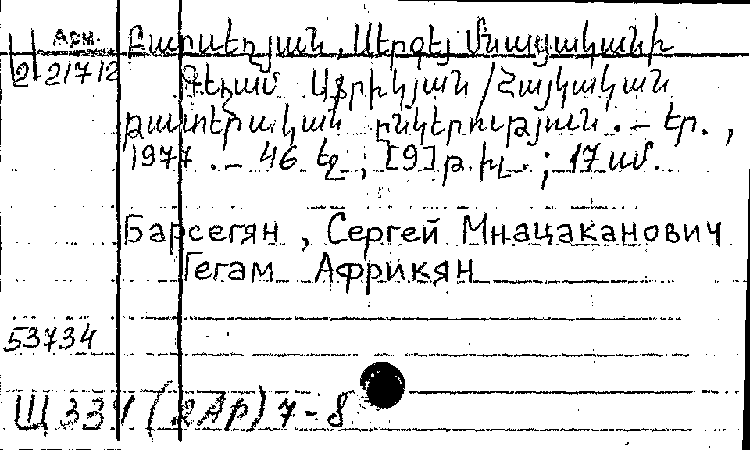 Арм.
2 21712
Բարսեղյան, Սերգեյ Մնացականի
Գեղամ Աֆրիկյան / Հայկական
թատերական ընկերություն. – Եր.,
1977. – 46 էջ, [9] թ. իլ. ; 17 սմ.
Барсегян, Сергей Мнацаканович
Гегам Африкян
53734
Щ 334 (2Ар) 7-8